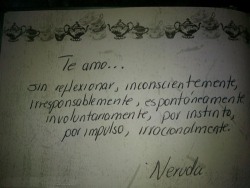 Te amo...
sin reflexionar, inconscientemente,
irresponsablemente, espontáneamente
involuntariamente, por instinto,
por impulso, irracionalmente.
Neruda